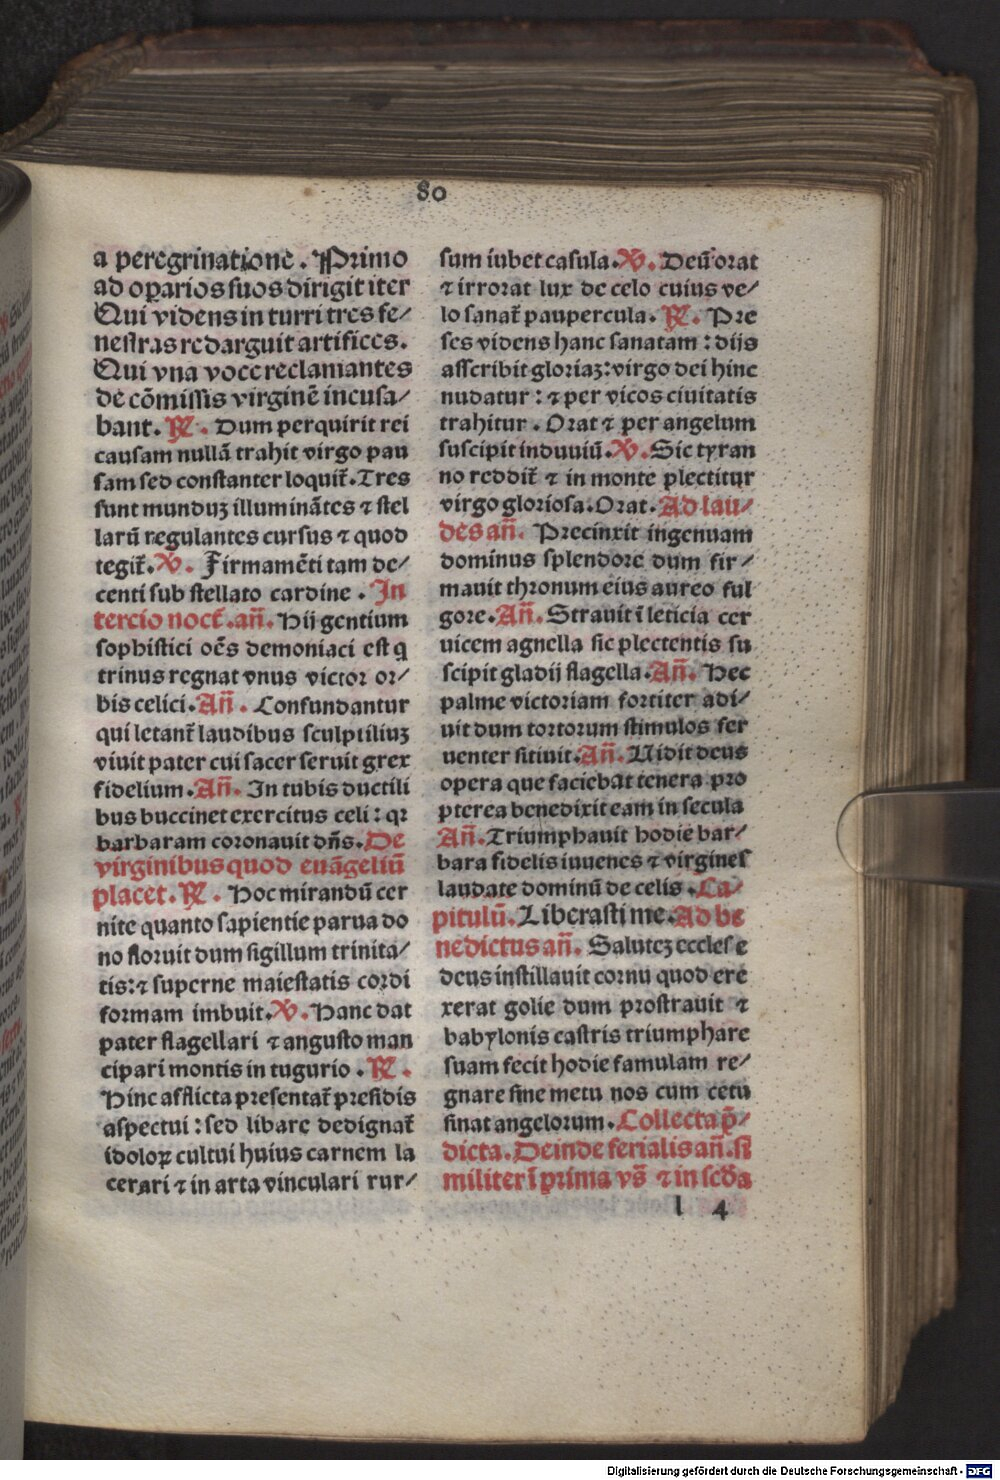 80
a peregrinatione . Primo
ad oꝑarios suos dirigit iter
Qui videns in turri tres fe⸗
nestras redarguit artifices.
Qui vna voce reclamantes
de cōmissis virginē incusa⸗
bant. ℟. Dum perquirit rei
causam nullā trahit virgo pau
sam sed constanter loquit̃. Tres
sunt munduꝫ illuminātes ⁊ stel
larū regulantes cursus ⁊ quod
tegit̃. ℣. Firmamēti tam de⸗
centi sub stellato cardine . In
tercio noct̃. añ. Hij gentium
sophistici oēs demoniaci est q
trinus regnat vnus victor or⸗
bis celici. Añ. Confundantur
qui letant̃ laudibus sculptiliuꝫ
viuit pater cui sacer seruit grex
fidelium. Añ. In tubis ductili
bus buccinet exercitus celi : qꝛ
barbaram coronauit dñs. De
virginibus quod euāgeliū
placet. ℟. Hoc mirandū cer
nite quanto sapientie parua do
no floruit dum sigillum trinita⸗
tis: ⁊ superne maiestatis cordi
formam imbuit. ℣. Hanc dat
pater flagellari ⁊ angusto man
cipari montis in tugurio . ℟.
Hinc afflicta presentat̃ presidis
aspectui : sed libare dedignat̃
idoloꝝ cultui huius carnem la
cerari ⁊ in arta vinculari rur⸗
sum iubet casula. ℣. Deū orat
⁊ irrorat lux de celo cuius ve⸗
lo sanat̃ paupercula. ℟. Pre
ses videns hanc sanatam : dijs
asscribit gloriaꝫ: virgo dei hinc
nudatur : ⁊ per vicos ciuitatis
trahitur . Orat ⁊ per angelum
suscipit induuiū. ℣. Sic tyran
no reddit̃ ⁊ in monte plectitur
virgo gloriosa. Orat. Ad lau⸗
des añ. Precinxit ingenuam
dominus splendore dum fir⸗
mauit thronum eius aureo ful
gore. Añ. Strauit ī leticia cer
uicem agnella sic plectentis su
scipit gladij flagella. Añ. Hec
palme victoriam fortiter adi⸗
uit dum tortorum stimulos fer
uenter sitiuit. Añ. Uidit deus
opera que faciebat tenera pro
pterea benedixit eam in secula
Añ. Triumphauit hodie bar⸗
bara fidelis iuuenes ⁊ virgines
laudate dominū de celis . Ca⸗
pitulū. Liberasti me. Ad be
nedictus añ. Saluteꝫ ecclesie
deus instillauit cornu quod ere
xerat golie dum prostrauit ⁊
babylonis castris triumphare
suam fecit hodie famulam re⸗
gnare sine metu nos cum cetu
sinat angelorum. Collecta p̄⸗
dicta. Deinde ferialis añ. si
militer ī prima vs̃ ⁊ in scd̃a
l 4
Digitalisierung gefördert durch die Deutsche Forschungsgemeinschaft - DFG